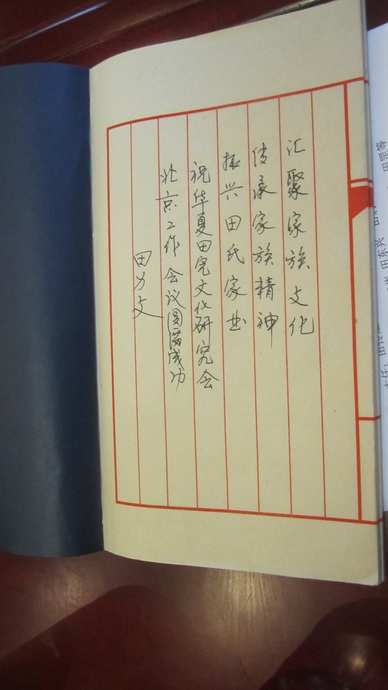 汇聚家族文化
传承家族精神
振兴田氏家业
祝华夏田完文化研究会
北京工作会议圆满成功
田力文